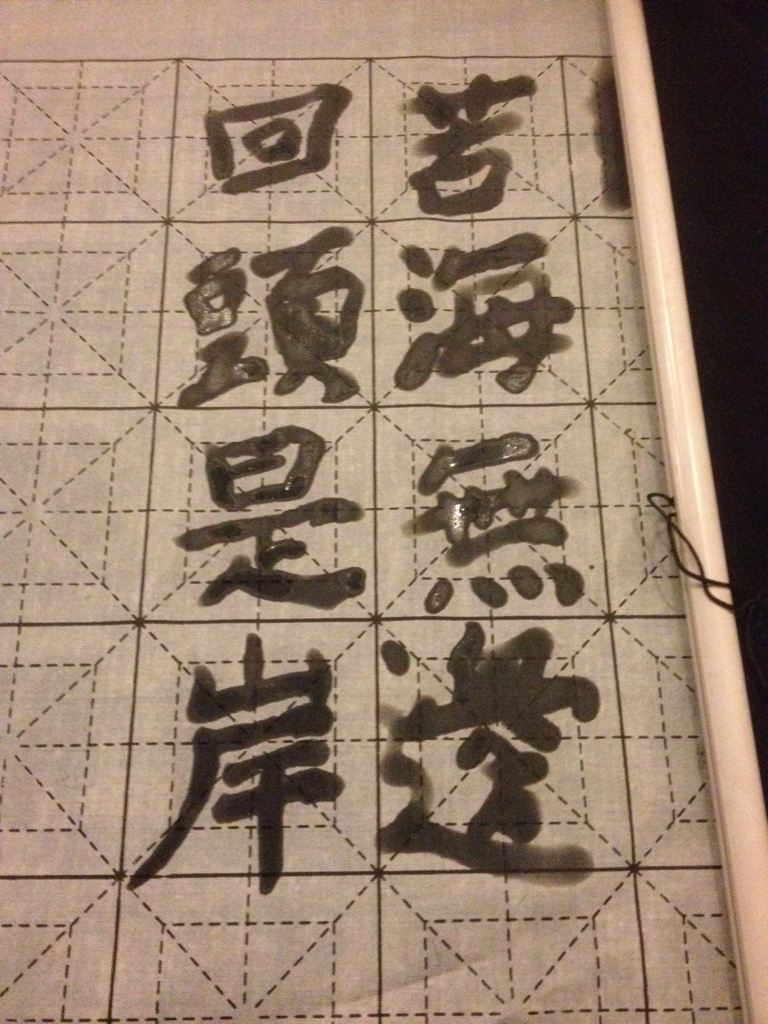 苦海無邊
回頭是岸